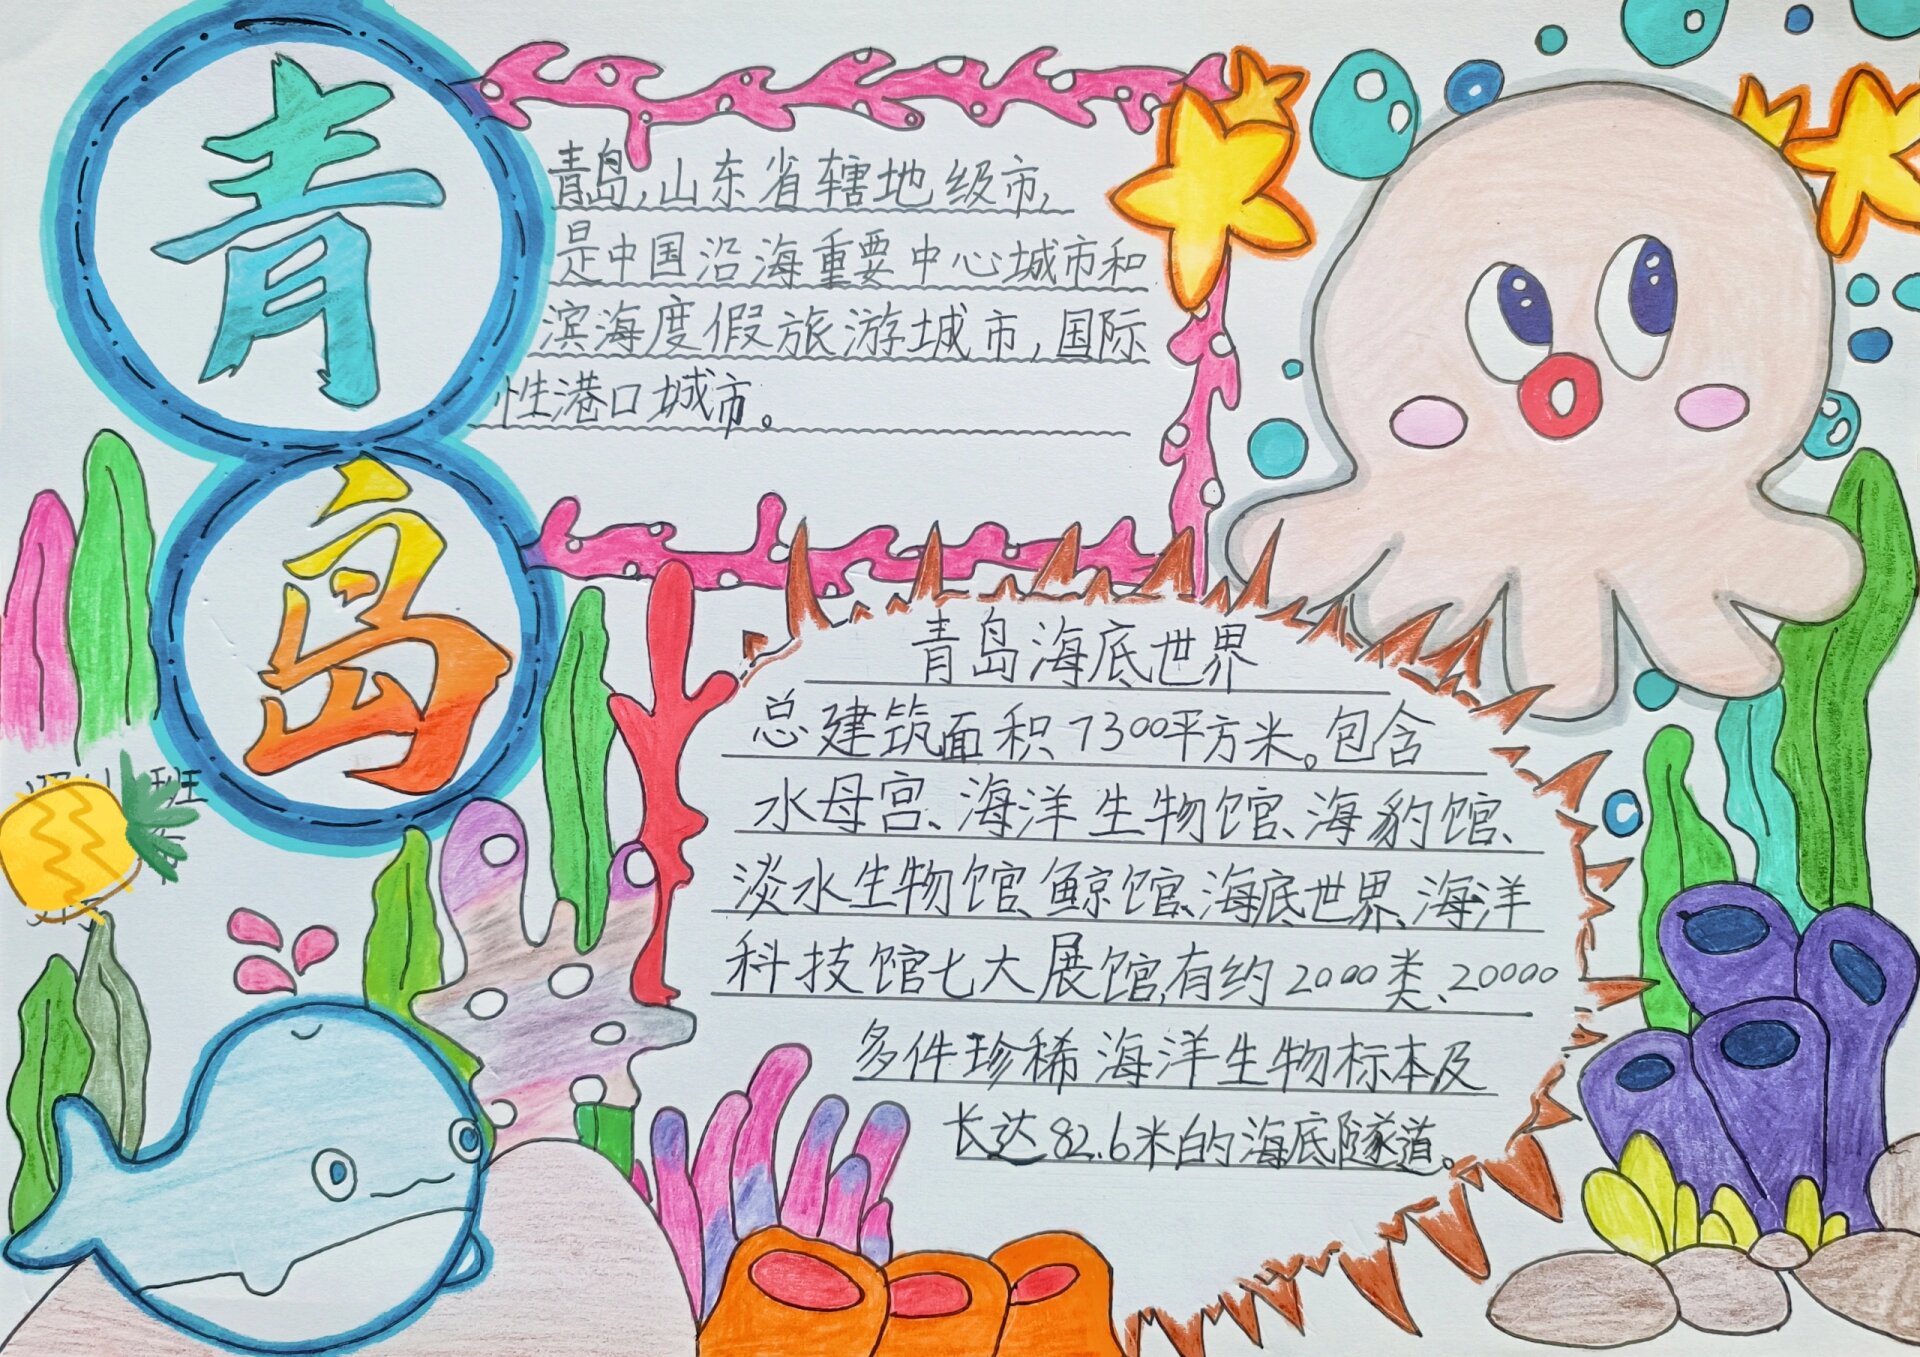 青
岛
青岛,山东省辖地级市,
是中国沿海重要中心城市和
滨海度假旅游城市,国际
性港口城市。
青岛海底世界
总建筑面积7300平方米。包含
水母宫、海洋生物馆、海豹馆、
淡水生物馆、鲸馆、海底世界、海洋
科技馆七大展馆,有约2000类、20000
多件珍稀海洋生物标本及
长达82.6米的海底隧道。
班